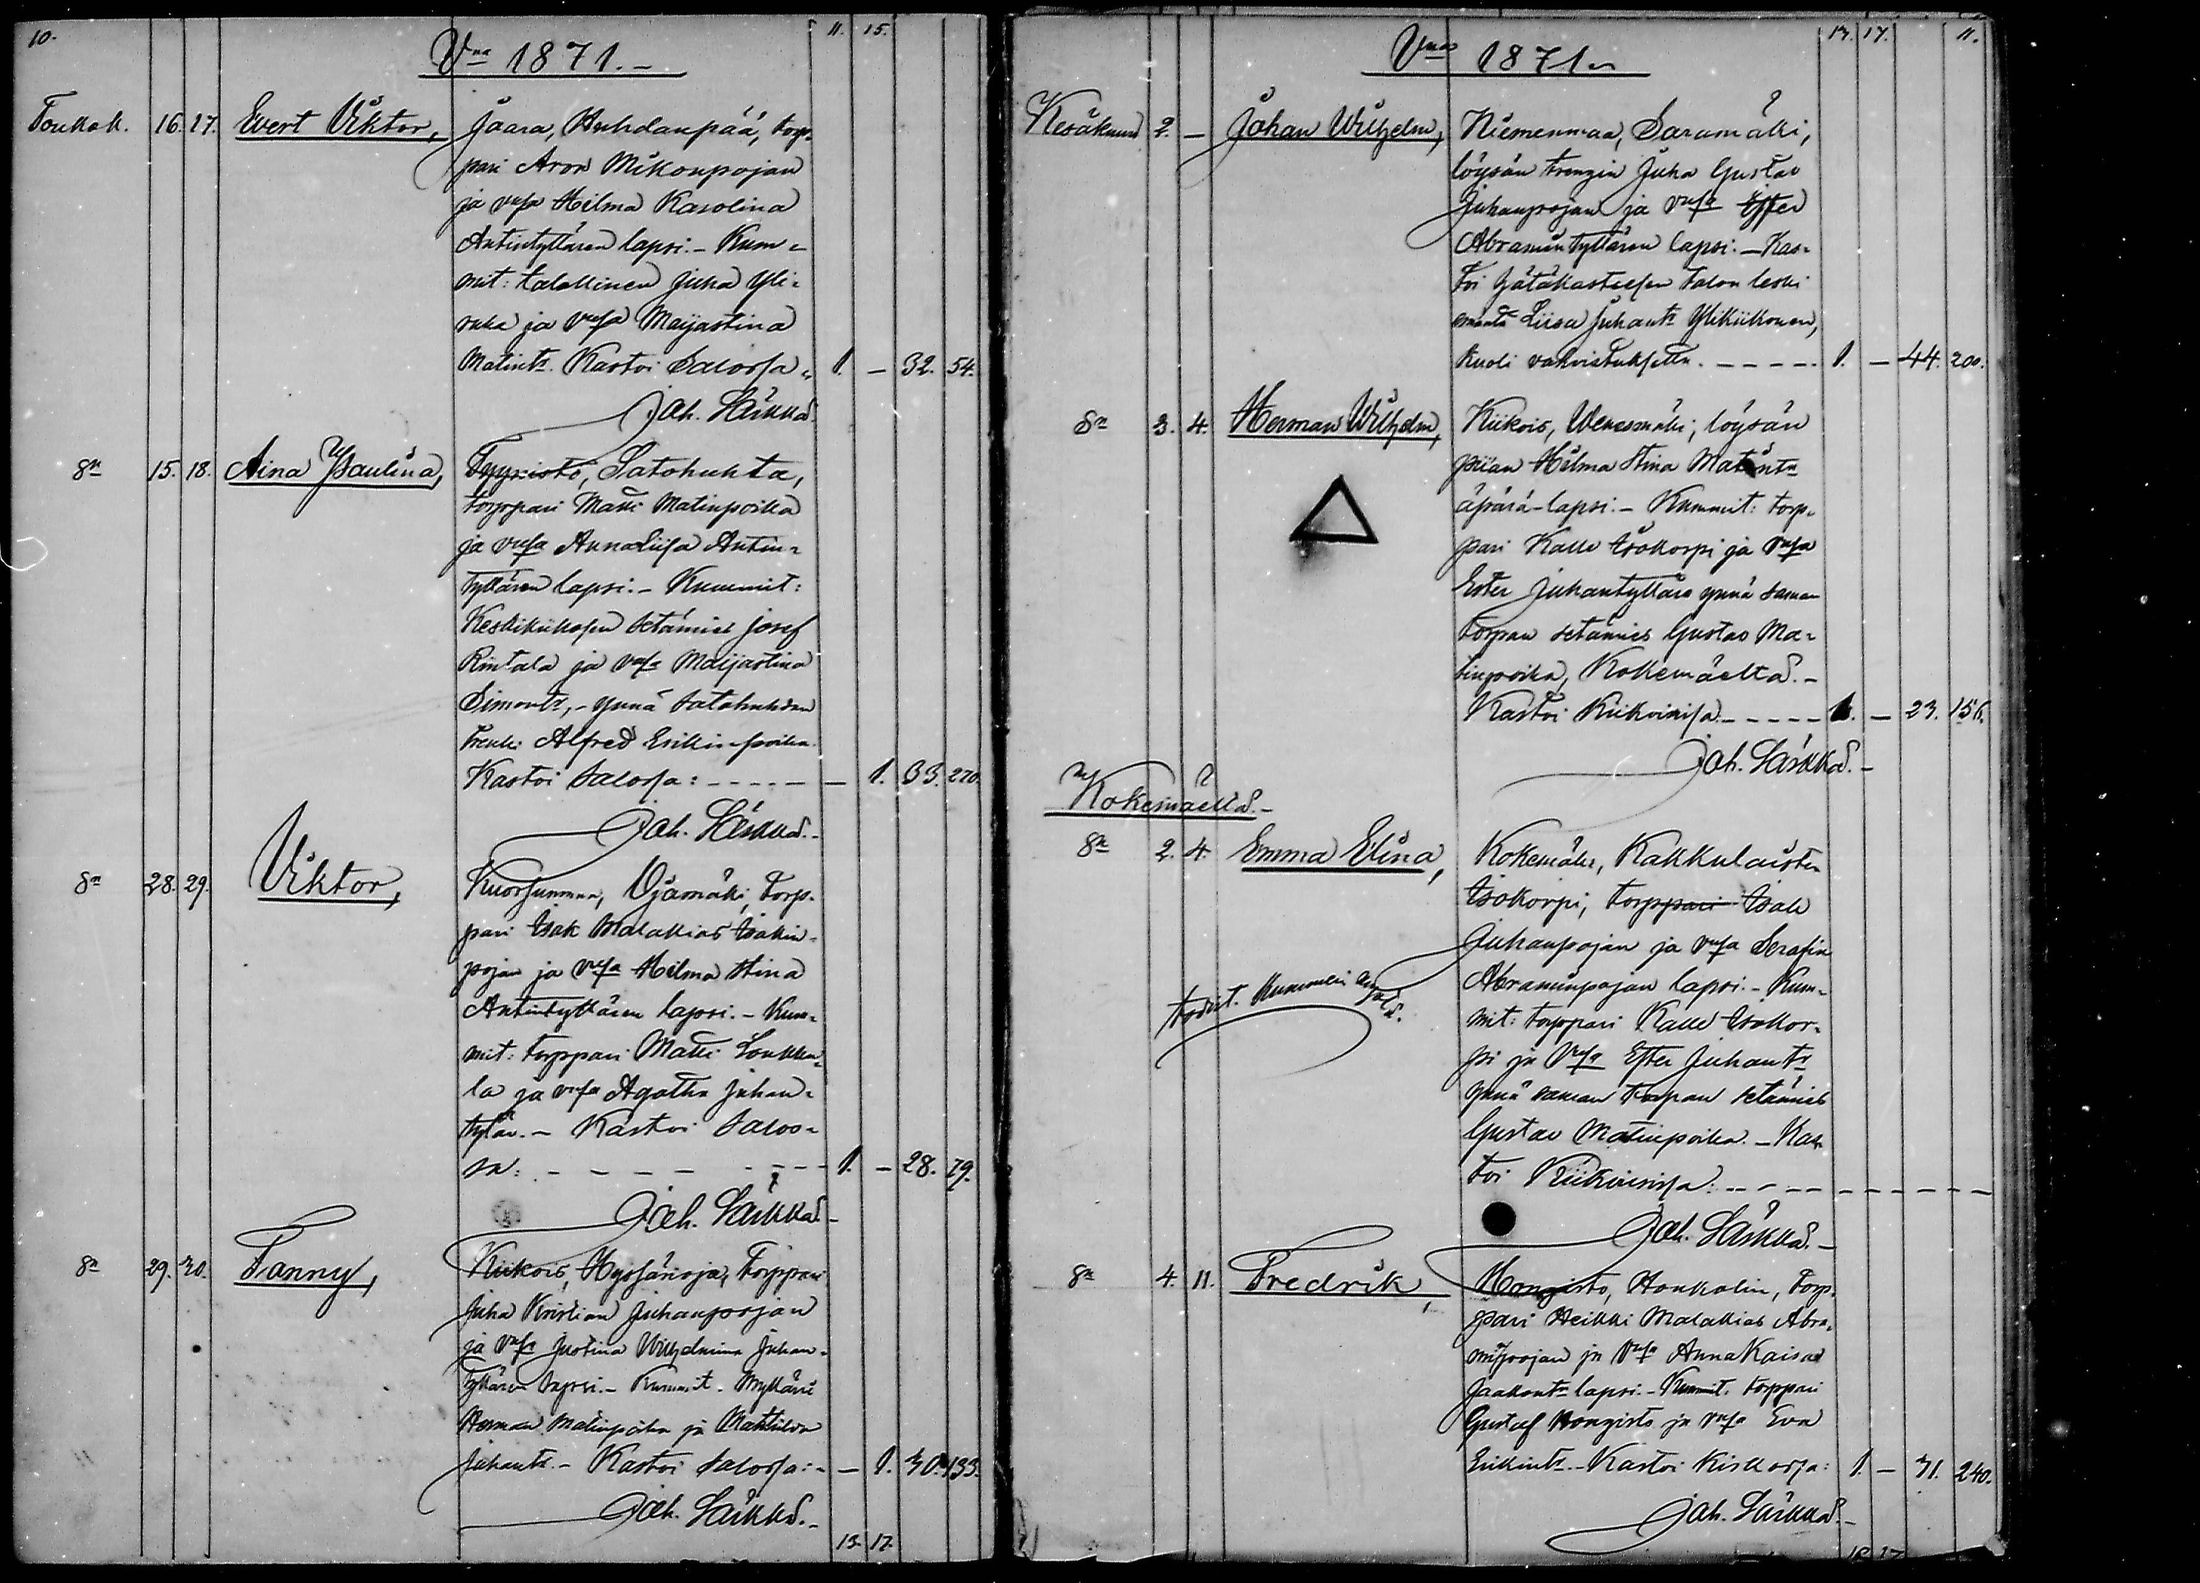 10.
Vna 1871.-
11. 15.
Toukok. 16. 17. Evert Viktor, Jaara, Huhdanpää, torp-
pari Aron Mikonpojan
ja vmsa Hilma Karolina
Antintyttären lapsi.- Kum-
mit: talollinen Juha Yli-
ja vmsa Maijastina
Matintr. Kastoi Salossa 1. - 32. 54.
Joh. Särkkä.
Sn 15. 18. Aina Pauliina, Satohuhta,
torppari Matti Matinpoika
ja vmsa Annaliisa Antin-
tyttären lapsi.- Kummit:
Josef
Rintala ja vmsa Maijastina
Simontr,- ynnä Satohuhdan
renki Alfred Erikinpoika.
Kastoi Salossa: - - - - - 1. 33. 270.
Joh. Särkkä.-
Sn 28. 29. Viktor, Ojamäki, torp-
pari Isak Malakias Isakin-
pojan ja vmsa Hilma Stina
Antintyttären lapsi.- Kum-
mit: torppari Matti
la ja vmsa Agatha Juhan-
tytär.- Kastoi Salos-
sa: - - - - - - - 1. - 28. 79.
Joh. Särkkä.-
Sn 29. 30. Fanny, Kiikois, torppari
Juha Kristian Juhanpojan
ja vmsa Justina Wilhelmina Juhan-
tyttären lapsi.- Kummit. Mylläri
Herman Matinpoika ja Mathilda
Juhantr.- Kastoi Salossa: - - 1. 30. 133.
Joh. Särkkä.-
13. 17.
Vna 1871.-
13. 17. 11.
Kesäkuu 2. - Johan Wilhelm, Niemenmaa, Saramäki,
löysän trengin Juha Gustav
Juhanpojan ja vmsa Ester
Abramintyttären lapsi.- Kas-
toi hätäkasteesen talon leski
emäntä Liisa Juhantr
Kuoli vahvistuksetta. - - - - 1. - 44. 200.
Sn 3. 4. Herman Wilhelm, Kiikois, löysän
piian Hilma Stina Matintr
äpärä-lapsi.- Kummit: torp-
pari Kalle Isokorpi ja vmsa
Ester Juhantyttären ynnä saman
torpan itämies Gustav Ma-
tinpoika, Kokemäeltä.-
Kastoi Kiikoisissa - - - - 1. - 23. 156.
Joh. Särkkä.-
Kokemäeltä.-
Sn 2. 4. Emma Elina, Kokemäki, Kakkulaisten
Isokorpi, torppari Isak
Juhanpojan ja vmsa Serafia
Abraminpojan lapsi.- Kum-
mit: torppari Kalle Isokor-
pi ja vmsa Ester Juhantr
ynnä saman torpan itämies
Gustav Matinpoika.- Kas-
toi Kiikoisissa: - - - - - - - - -
Joh. Särkkä.-
Sn 4. 11. Fredrik, Hongisto, Honkolin, torp-
pari Heikki Malakias Abra-
minpojan ja vmsa AnnaKaisa
Jaakontr lapsi.- Kummit. torppari
Gustaf Hongisto ja vmsa Eva
Erikintr.- Kastoi Kirkossa: 1. - 31. 240.
Joh. Särkkä.-